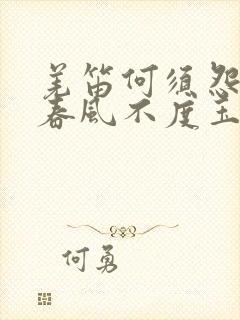 羌笛何须怨
春风不度玉
何勇